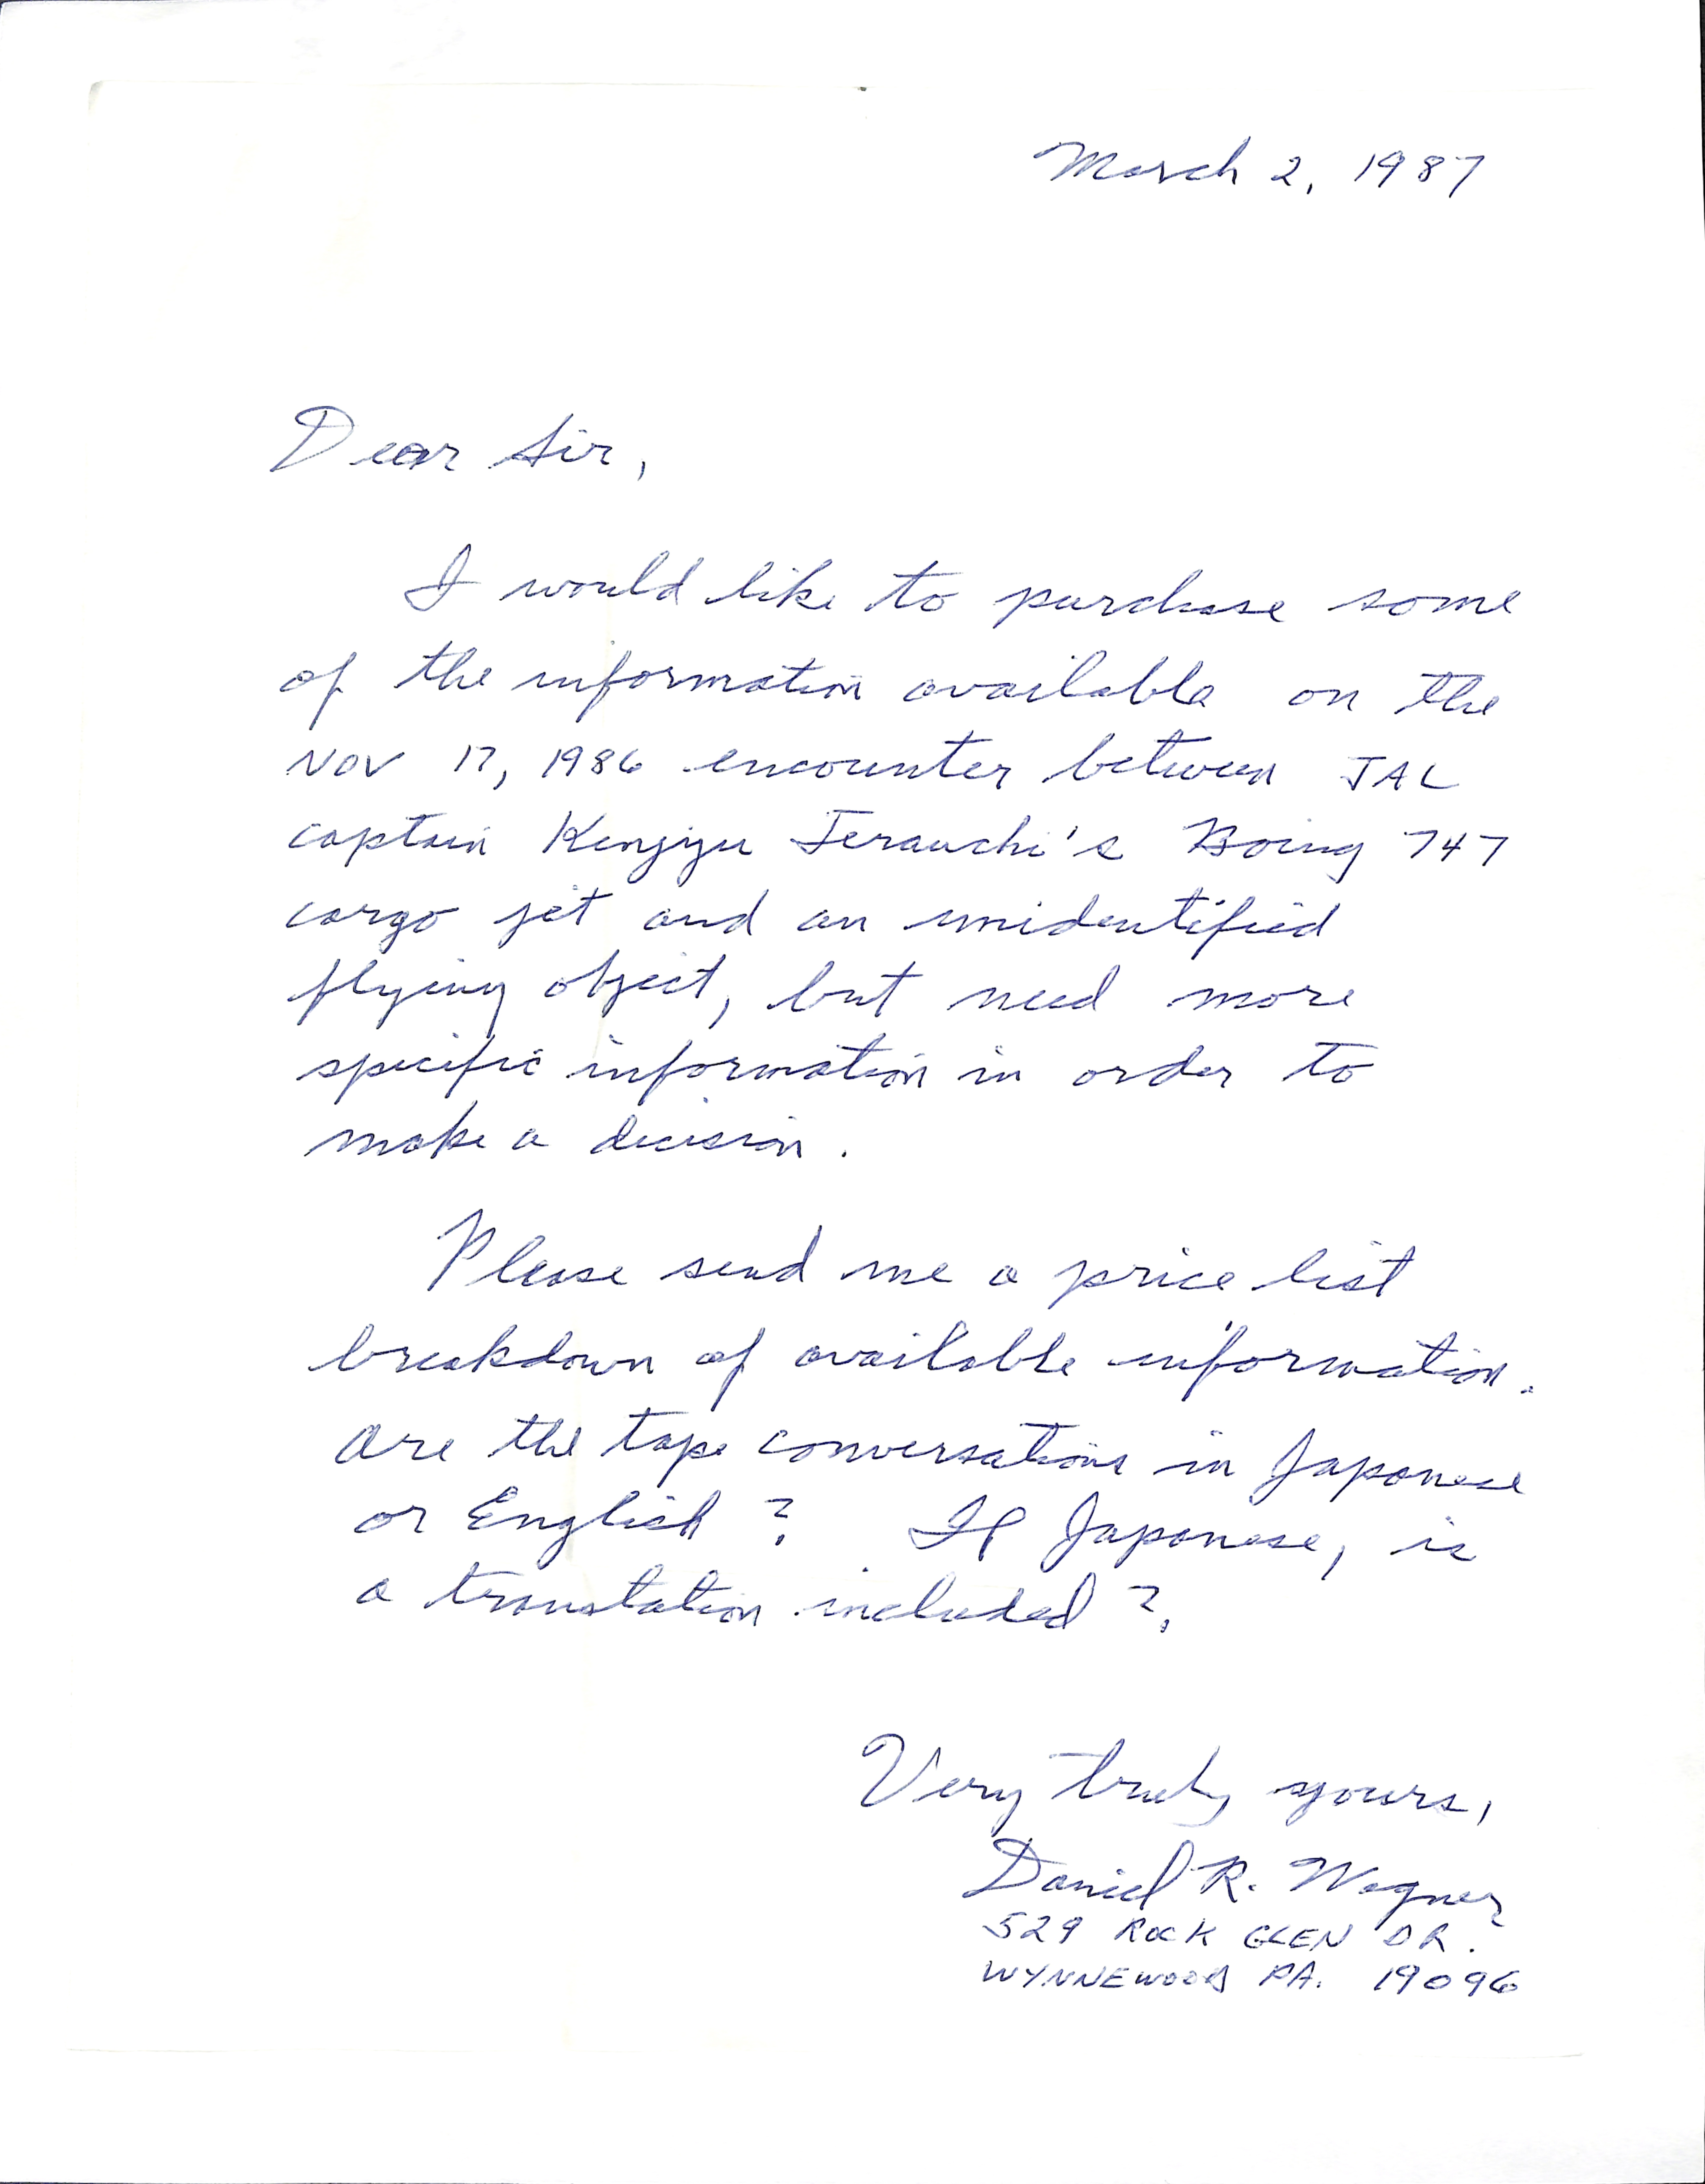 March 2, 1987
Dear Sir,
I would like to purchase some
of the information available on the
NOV 17, 1986 encounter between JAL
captain Kenjyu Terauchi's Boing 747
cargo jet and an unidentified
flying object, but need more
specific information in order to
make a decision.
Please send me a price list
breakdown of available information.
Are the tape conversations in Japanese
or English? If Japanese, is
a translation included?
Very truly yours,
Daniel R. Wagner
529 ROCK GLEN DR.
WYNNEWOOD PA. 19096